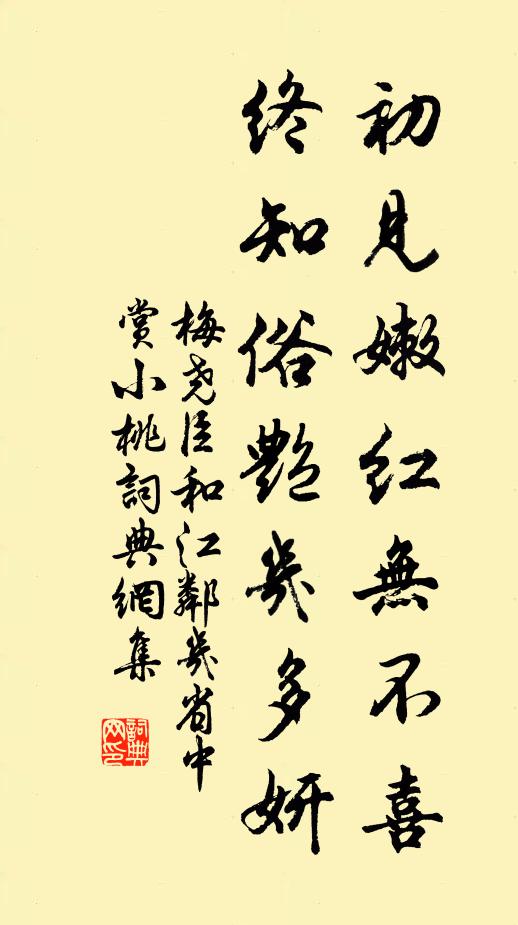 初見嫩紅無不喜
終知俗艷幾多妍
梅堯臣和江鄰幾省中
賞小桃詞典網集
詞典
网印